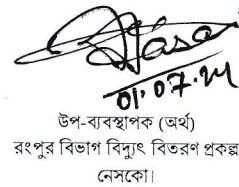 01.07.24
উপ-ব্যবস্থাপক (অর্থ)
রংপুর বিভাগ বিদ্যুৎ বিতরণ প্রকল্প
নেসকো।